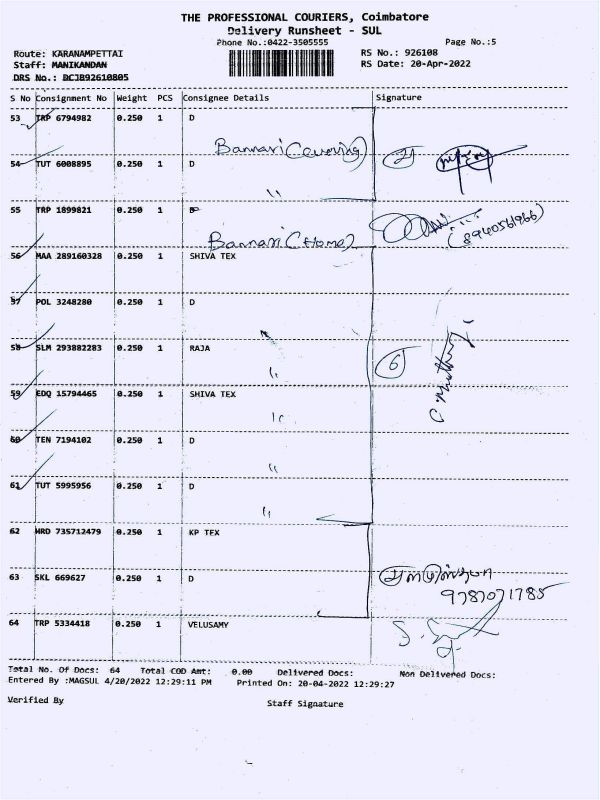 THE PROFESSIONAL COURIERS, Coimbatore
Delivery Runsheet - SUL
Phone No.:0422-3505555 Page No.:5
Route: KARANAMPETTAI RS No.: 926108
Staff: MANIKANDAN RS Date: 20-Apr-2022
DRS No.: DCJB92610805
S No Consignment No Weight PCS Consignee Details Signature
53 TRP 6794982 0.250 1 D
Bannari (Covering) 2
54 TUT 6008895 0.250 1 D
"
55 TRP 1899821 0.250 1 D
Bannari (Home) (8940561966)
56 MAA 289160328 0.250 1 SHIVA TEX
57 POL 3248280 0.250 1 D
58 SLM 293882283 0.250 1 RAJA
" 6
59 EDQ 15794465 0.250 1 SHIVA TEX
"
60 TEN 7194102 0.250 1 D
"
61 TUT 5995956 0.250 1 D
"
62 HRD 735712479 0.250 1 KP TEX
63 SKL 669627 0.250 1 D
9787071785
64 TRP 5334418 0.250 1 VELUSAMY
Total No. Of Docs: 64 Total COD Amt: 0.00 Delivered Docs: Non Delivered Docs:
Entered By :MAGSUL 4/20/2022 12:29:11 PM Printed On: 20-04-2022 12:29:27
Verified By Staff Signature